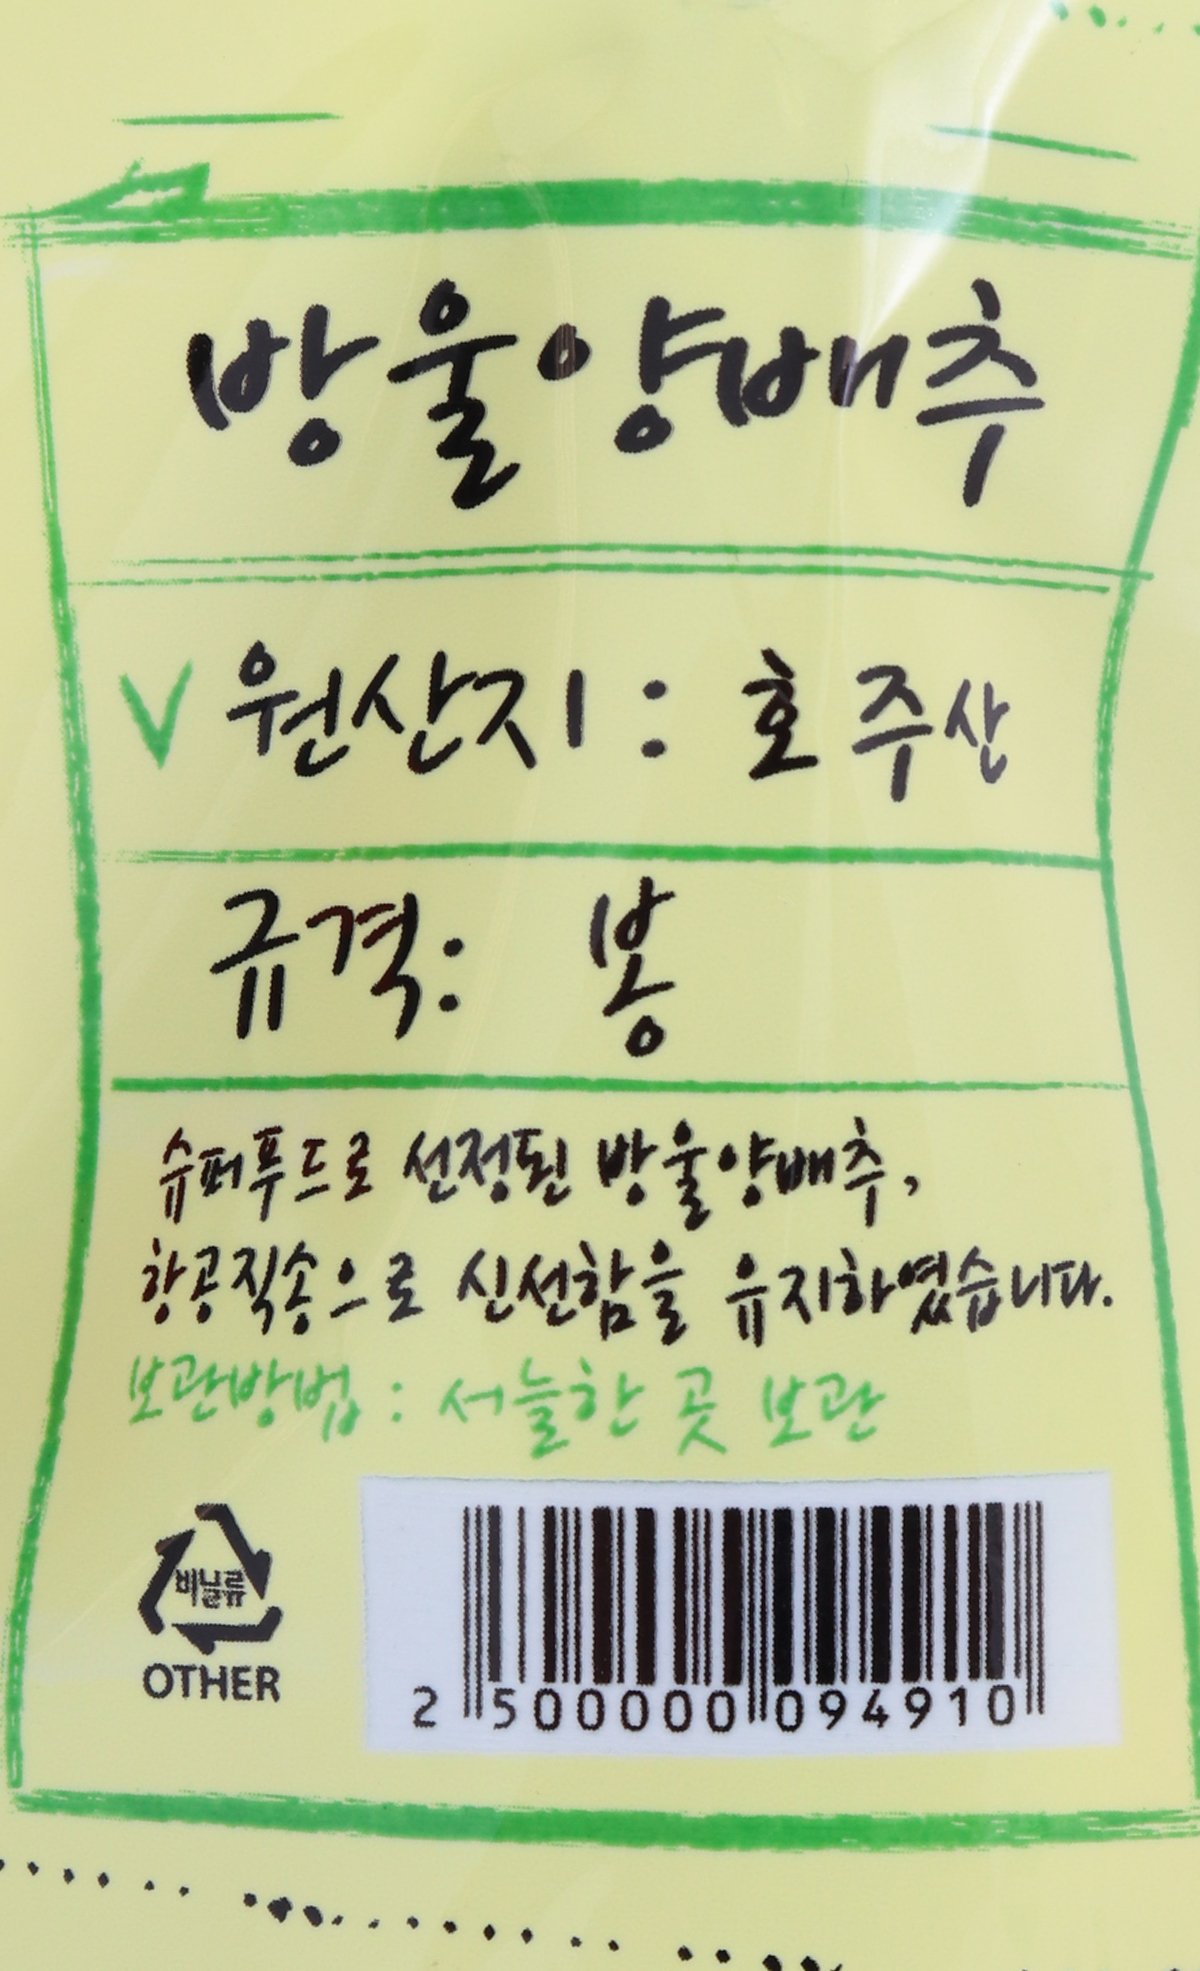 방울양배추
원산지 : 호주산
규격: 봉
슈퍼푸드로 선정된 방울양배추,
항공직송으로 신선함을 유지하였습니다.
보관방법 : 서늘한 곳 보관
비닐류
OTHER
2 500000 094910